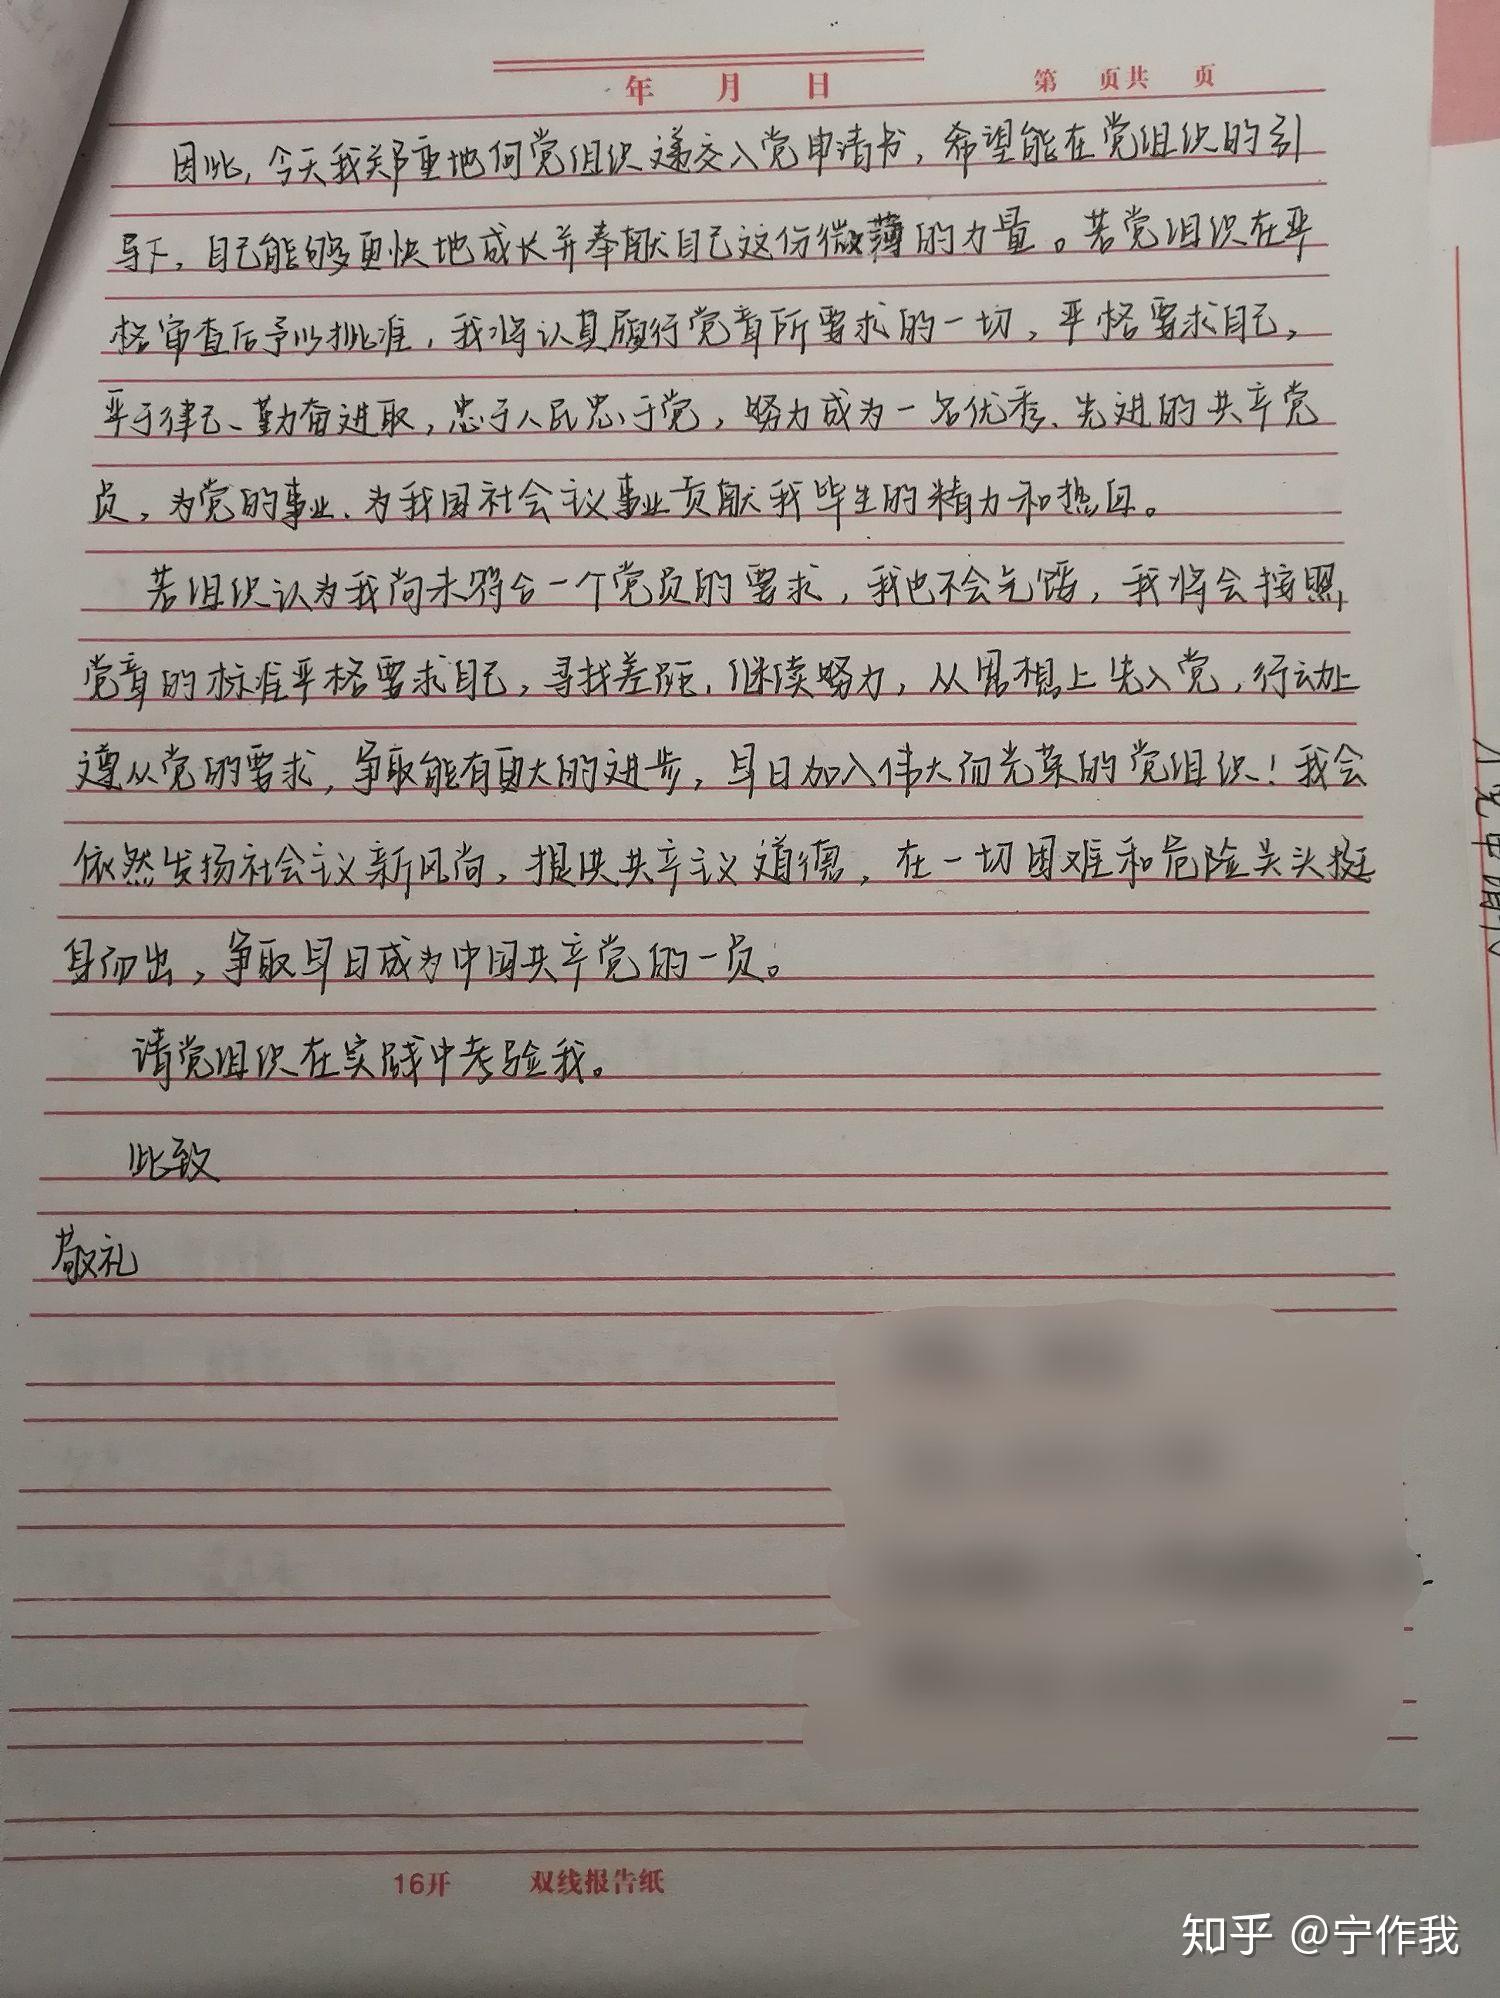 年 月 日
第 页共 页
因此，今天我郑重地向党组织递交入党申请书，希望能在党组织的引
导下，自己能够更快地成长并奉献自己这份微薄的力量。若党组织在严
格审查后予以批准，我将认真履行党章所要求的一切，严格要求自己，
严于律己、勤奋进取，忠于人民忠于党，努力成为一名优秀、先进的共产党
员，为党的事业、为我国社会主义事业贡献我毕生的精力和热血。
若组织认为我尚未符合一个党员的要求，我也不会气馁，我将会按照
党章的标准严格要求自己，寻找差距，继续努力，从思想上先入党，行动上
遵从党的要求，争取能有更大的进步，早日加入伟大而光荣的党组织！我会
依然发扬社会主义新风尚，提供共产主义道德，在一切困难和危险关头挺
身而出，争取早日成为中国共产党的一员。
请党组织在实践中考验我。
此致
敬礼
16开 双线报告纸
知乎 @宁作我